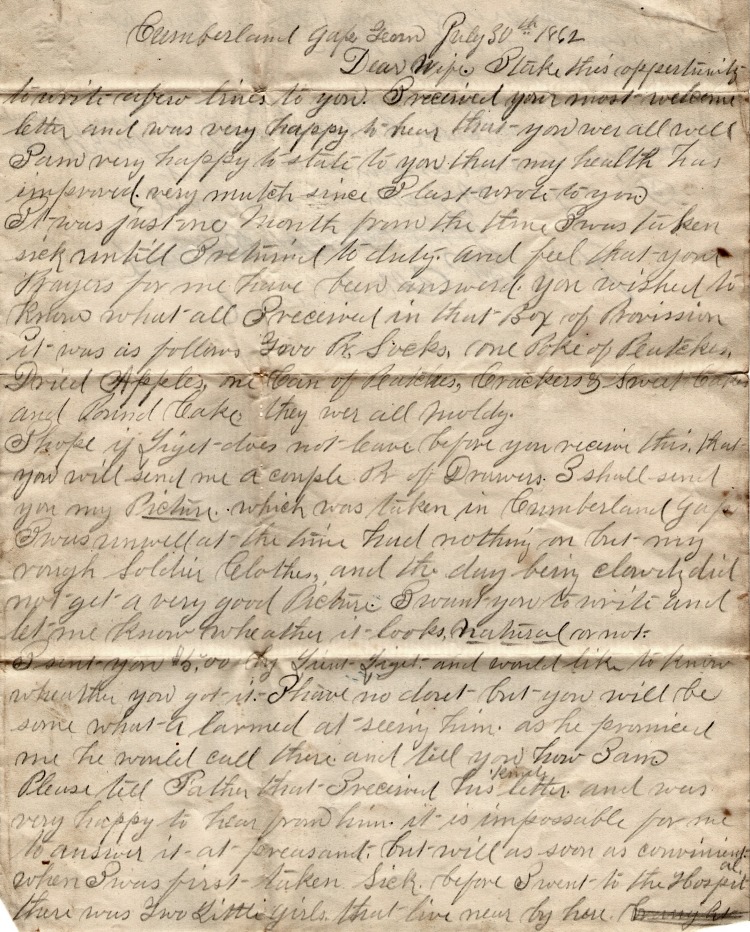 Cumberland Gap Tenn July 30th 1862
Dear Wife I take this oppertunity
to write a few lines to you. I received your most welcome
letter and was very happy to hear that you wer all well
I am very happy to state to you that my health has
improved very mutch since I last wrote to you
It was just one Month from the time I was taken
sick untill I returnd to duty. and feel that your
Prayers for me have been answerd. you wished to
know what all I received in that Box of Provission
it was as follows Two Pr. Socks, one Poke of Peatches,
Dried Apples, one Can of Peatches, Crackers & Sweet Cakes
and Pound Cake, they wer all moldy.
I hope if Liget does not leave before you receive this, that
you will send me a couple Pr of Drawers. I shall send
you my Picture which was taken in Cumberland Gap
I was unwell at the time had nothing on but my
rough Soldier Clothes, and the day being clowdy did
not get a very good Picture I want you to write and
let me know wheather it looks natural or not.
I sent you $5.00 by Lieut Liget and would like to know
wheather you got it. I have no dout but you will be
some what a larmed at seeing him. as he promised
me he would call there and tell you how I am
Please tell Father that I received his letter and was
very happy to hear from him. it is impossable for me
to answer it at preasant. but will as soon as convinient
when I was first taken Sick. before I went to the Hospital
there was Two Little girls that live near by here.